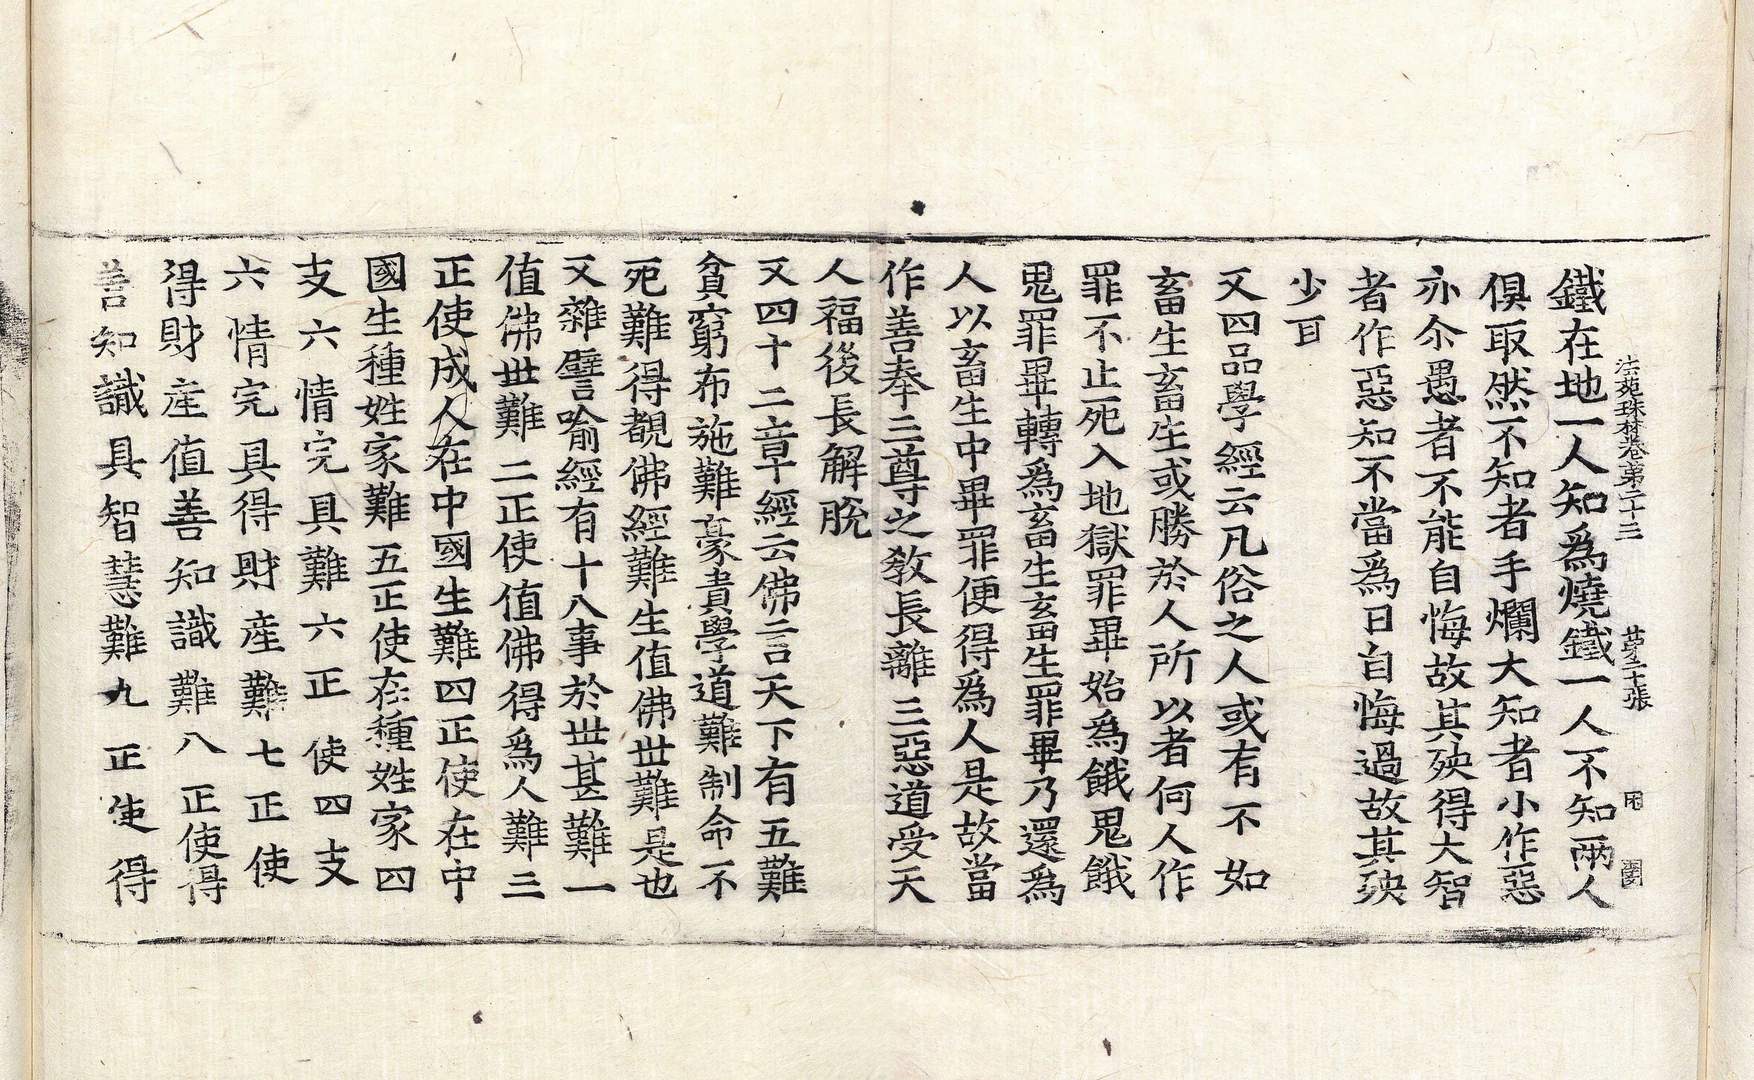 法苑珠林卷第二十三 第二十張 困
鐵在地一人知爲燒鐵一人不知兩人
俱取然不知者手爛大知者小作惡
亦尒愚者不能自悔故其殃得大智
者作惡知不當爲日自悔過故其殃
少耳
又四品學經云凡俗之人或有不如
畜生畜生或勝於人所以者何人作
罪不止死入地獄罪畢始爲餓鬼餓
鬼罪畢轉爲畜生畜生罪畢乃還爲
人以畜生中畢罪便得爲人是故當
作善奉三尊之教長離三惡道受天
人福後長解脫
又四十二章經云佛言天下有五難
貧窮布施難豪貴學道難制命不
死難得覩佛經難生值佛世難是也
又雜譬喻經有十八事於世甚難一
值佛世難二正使值佛得爲人難三
正使成人在中國生難四正使在中
國生種姓家難五正使在種姓家四
支六情完具難六正使四支
六情完具得財産難七正使
得財産值善知識難八正使得
善知識具智慧難九正使得